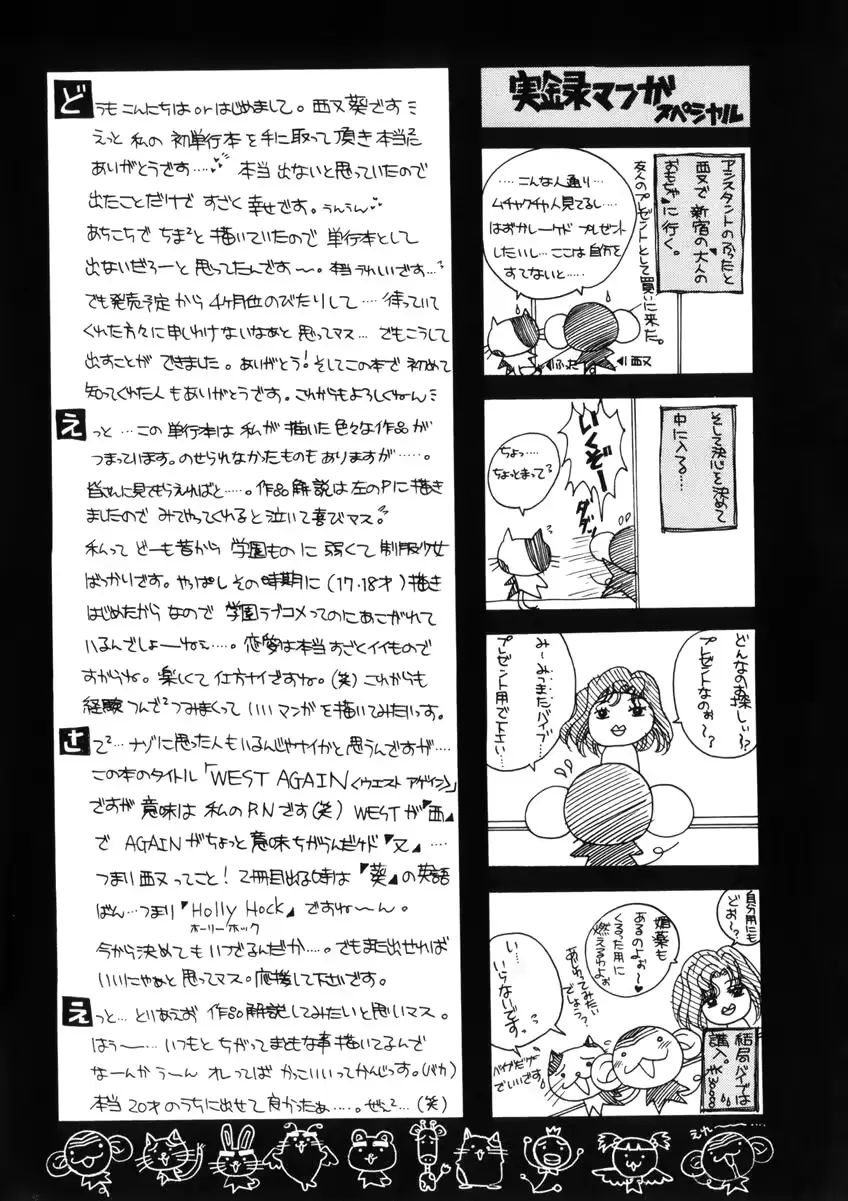 実録マンガ
スペシャル
アシスタントのふったと
西又で新宿の大人の
おもちゃ♥に行く。
友人のプレゼントとして買いに来た。
……こんな人通り…
ムチャクチャ人見てるし…
はずかしーケド プレゼント
したいし…ここは自分を
すてないと……
ふった
西又
そして決心を決めて
中に入る……
いくぞー
ダダッ
ちょっ…
ちょっとまって?
どんなのお探しぃ〜?
プレゼントなのぉ〜?
み〜みったキバイブ…
プレゼント用で下さい…
自分用にも
どお〜?
媚薬も
あるのよぉ〜♥
くるった用に
燃えるわよぉ
い…
いらないです。
バイブだけで
いいです
結局バイブは
購入。¥30000
どうもこんにちは orはじめまして。西又葵です
えっと私の初単行本を手に取って頂き本当に
ありがとうです……本当出ないと思っていたので
出たことだけですごく幸せです。うんうん
あちこちでちま²と描いていたので単行本として
出ないだろーと思ってたんです〜。本当うれしいです…
でも発売予定から4ヶ月位のびたりして……待っていて
くれた方々に申しわけないなぁと思ってマス…でもこうして
出すことができました。ありがとう!そしてこの本で初めて
知ってくれた人もありがとうです。これからもよろしくねん
えっと…この単行本は私が描いた色々な作品が
つまっています。のせられなかたものもありますが……。
皆さんに見てもらえればと……。作品解説は左のPに描き
ましたのでみてやってくれると泣いて喜びマス?
私ってどーも昔から学園ものに弱くて制服少女
ばっかりです。やっぱしその時期に(17.18才)描き
はじめたからなので学園ラブコメってのにあこがれて
いるんでしょーねぇ……。恋愛は本当すごくイイもので
すからね。楽しくて仕方ナイですね。(笑)これからも
経験つんで²つみまくっていいマンガを描いてみたいっす。
さて²…ナゾに思った人もいるんじゃナイかと思うんですが…
この本のタイトル「WEST AGAIN<ウエスト アゲイン>」
ですが意味は私のP.Nです(笑)WESTが『西』
でAGAINがちょっと意味ちがうんだケド『又』…
つまり西又ってこと!2冊目出る時は『葵』の英語
ばん…つまり『Holly Hock』ですね〜ん。
ホーリー ホック
今から決めてもいつでるんだか……。でもまた出せれば
いいにゃあと思ってマス。応援して下さいです。
えっと…とりあえず作品解説してみたいと思いマス。
はぅ〜…いつもとちがってまともな事描いてるんで
なーんかうーんオレってばかっこいいってかんじっす。(バカ)
本当20才のうちに出せて良かたぁ……。ぜぇ²…(笑)
えれ〜……